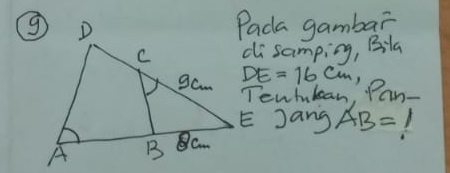 9
Pada gambar
di samping, Bila
DE = 16 cm,
Tentukan, Pan-
jang AB = !
D
C
9cm
E
A
B
8cm